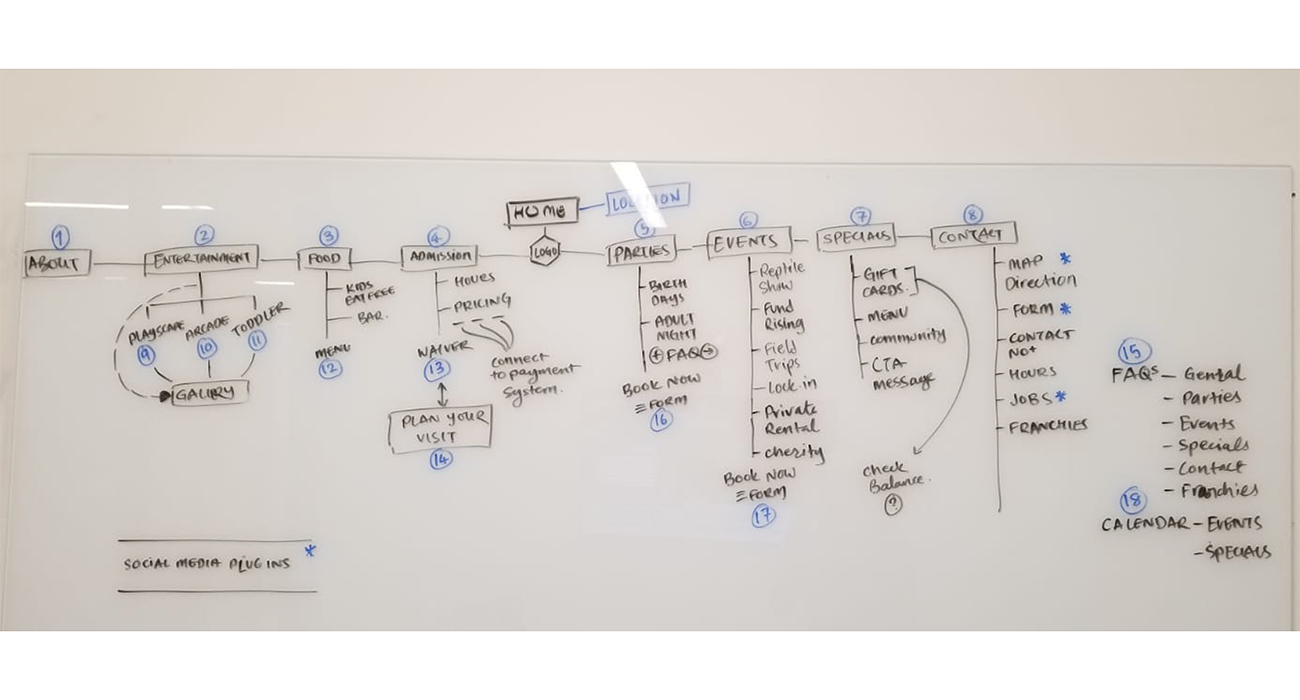 HOME
LOCATION
LOGO
1
ABOUT
2
ENTERTAINMENT
PLAYSCAPE
9
ARCADE
10
TODDLER
11
GALLERY
3
FOOD
- KIDS
EAT FREE
- BAR.
MENU
12
4
ADMISSION
- HOURS
- PRICING
WAIVER
13
connect
to payment
system.
PLAN YOUR
VISIT
14
5
PARTIES
- BIRTH
DAYS
- ADULT
NIGHT
+ FAQ →
BOOK NOW
≡ FORM
16
6
EVENTS
- Reptile
Show
- Fund
Rising
- Field
Trips
- Lock.in
- Private
Rental
- cherity
BOOK NOW
≡ FORM
17
7
SPECIALS
- GIFT
CARDS.
- MENU
- community
- CTA
message
check
Balance.
?
8
CONTACT
- MAP *
Direction
- FORM *
- CONTACT
NO#
- HOURS
- JOBS *
- FRANCHIES
15
FAQs - General
- Parties
- Events
- Specials
- Contact
- Franchies
18
CALENDAR - EVENTS
- SPECIALS
SOCIAL MEDIA PLUGINS *